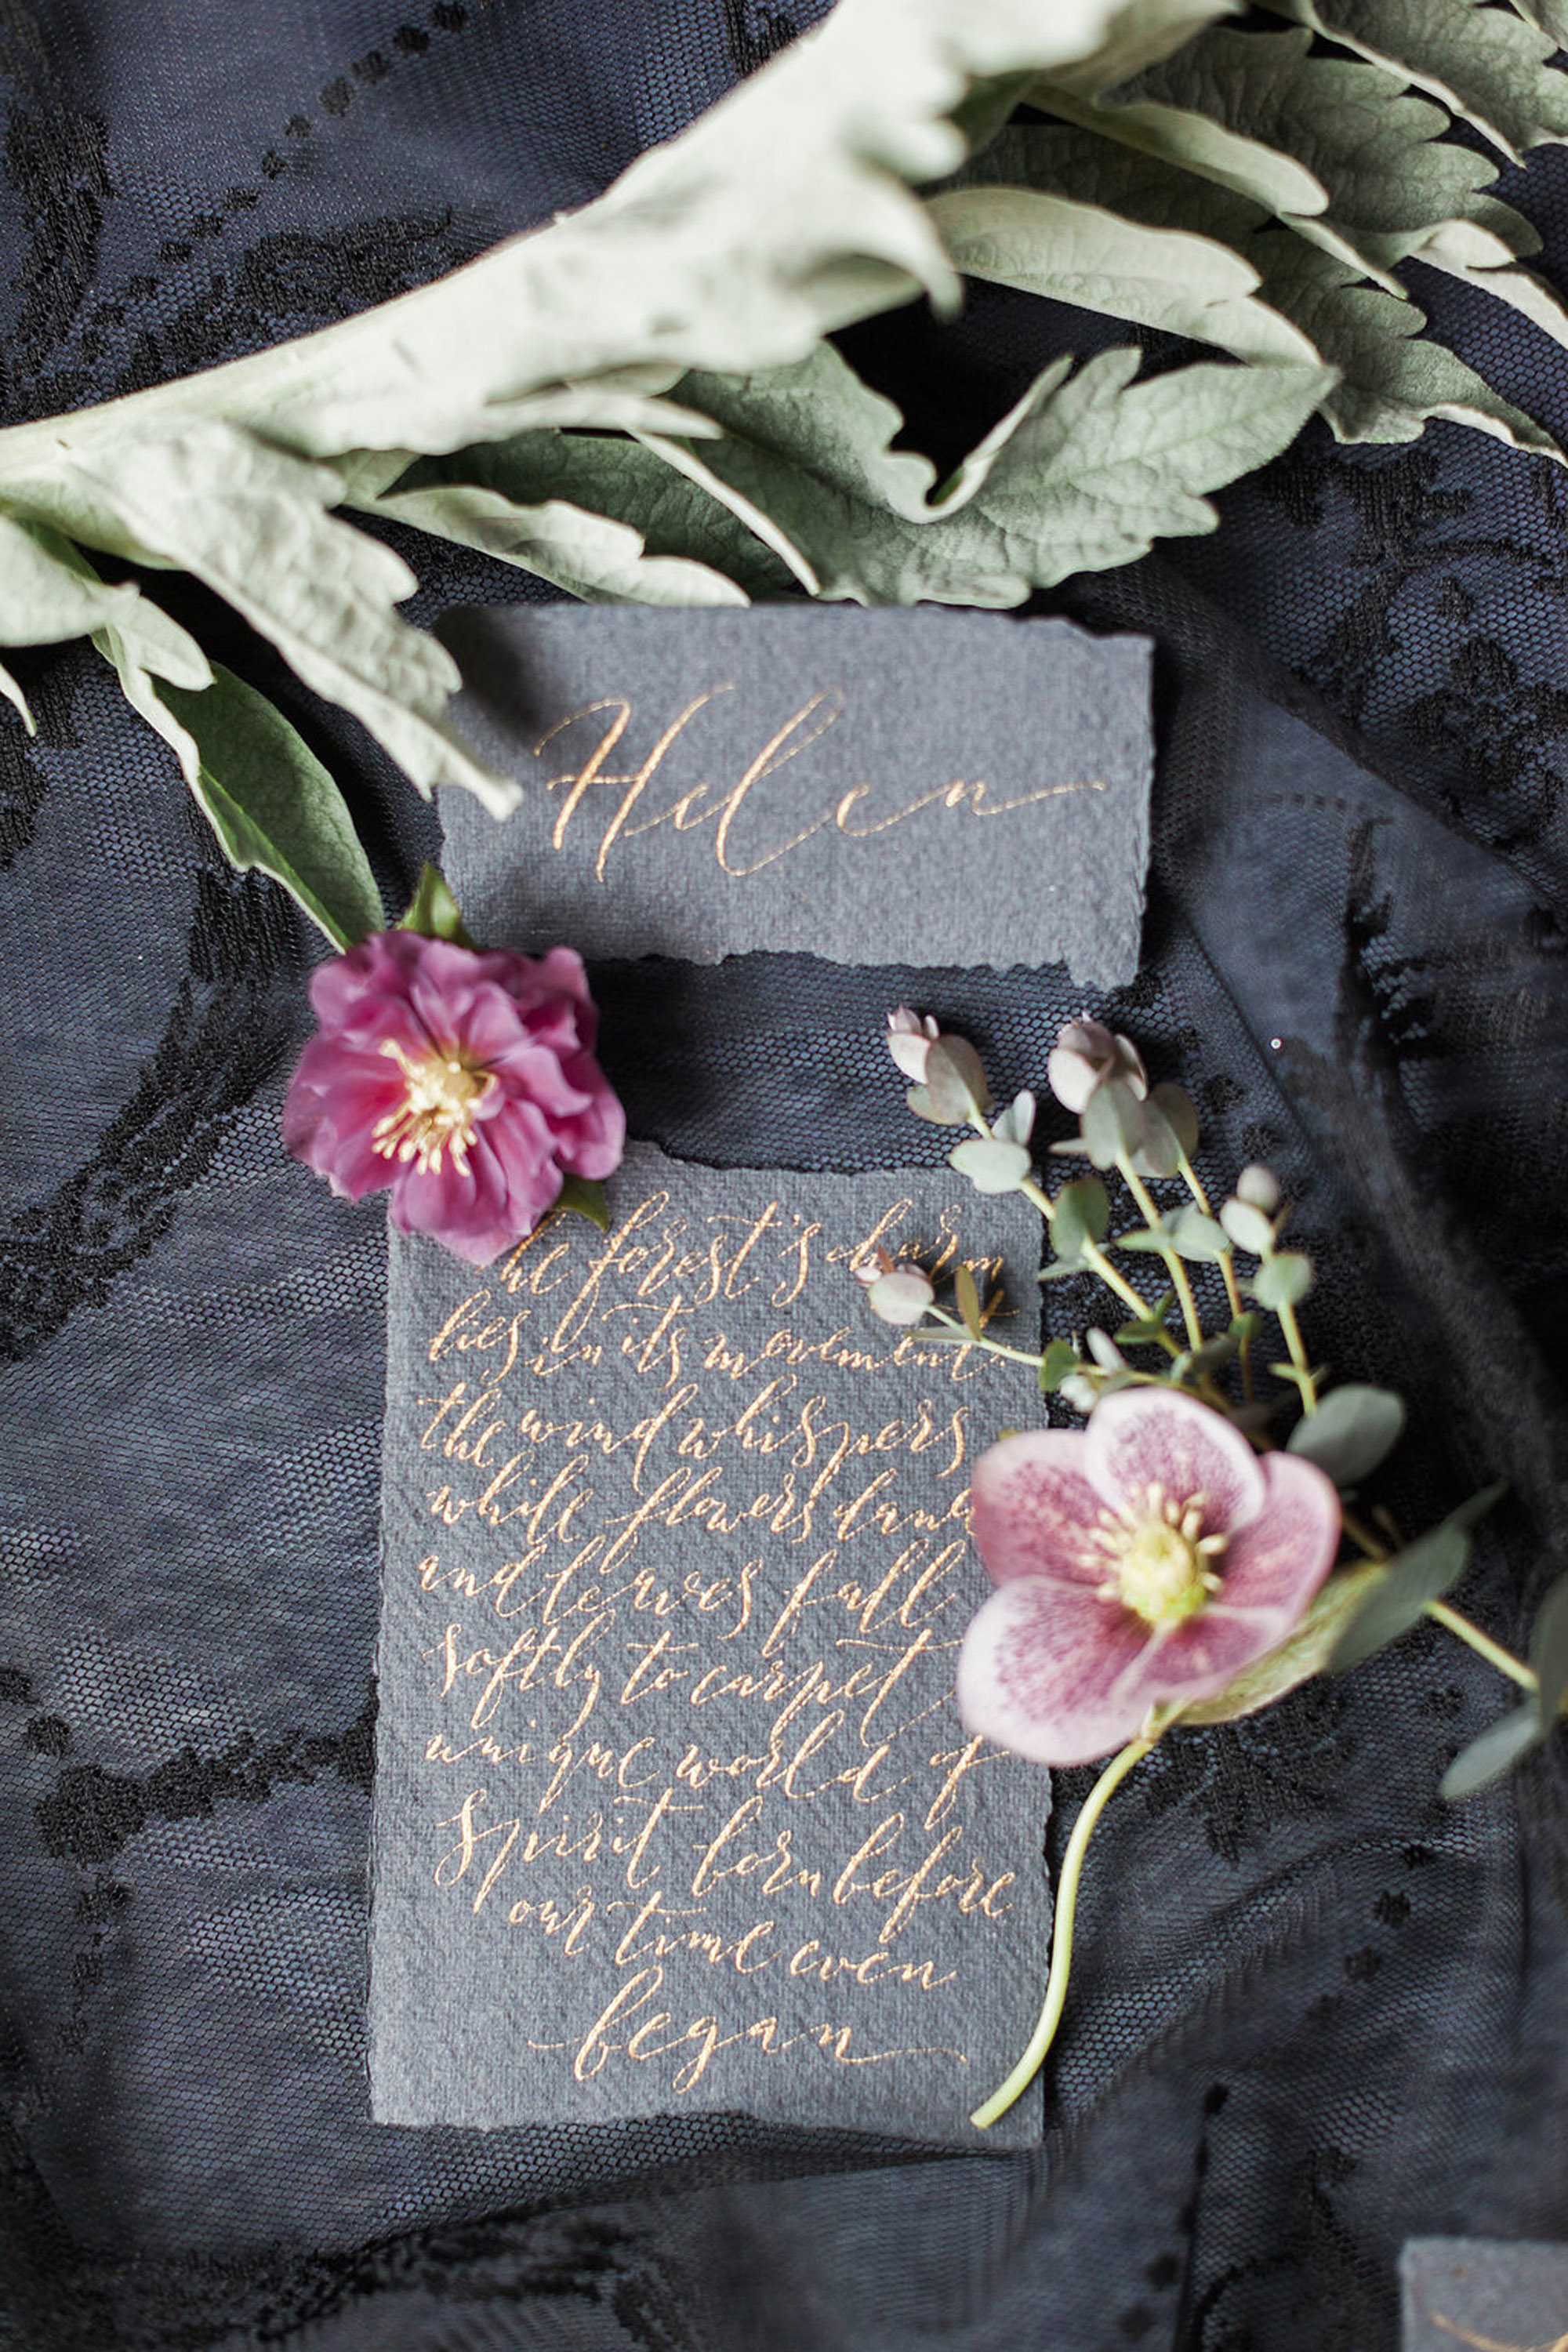 Helen
he forest's charm
lies in its movement.
the wind whispers
while flowers danc
and leaves fall
softly to carpet
unique world of
spirit born before
our time even
began